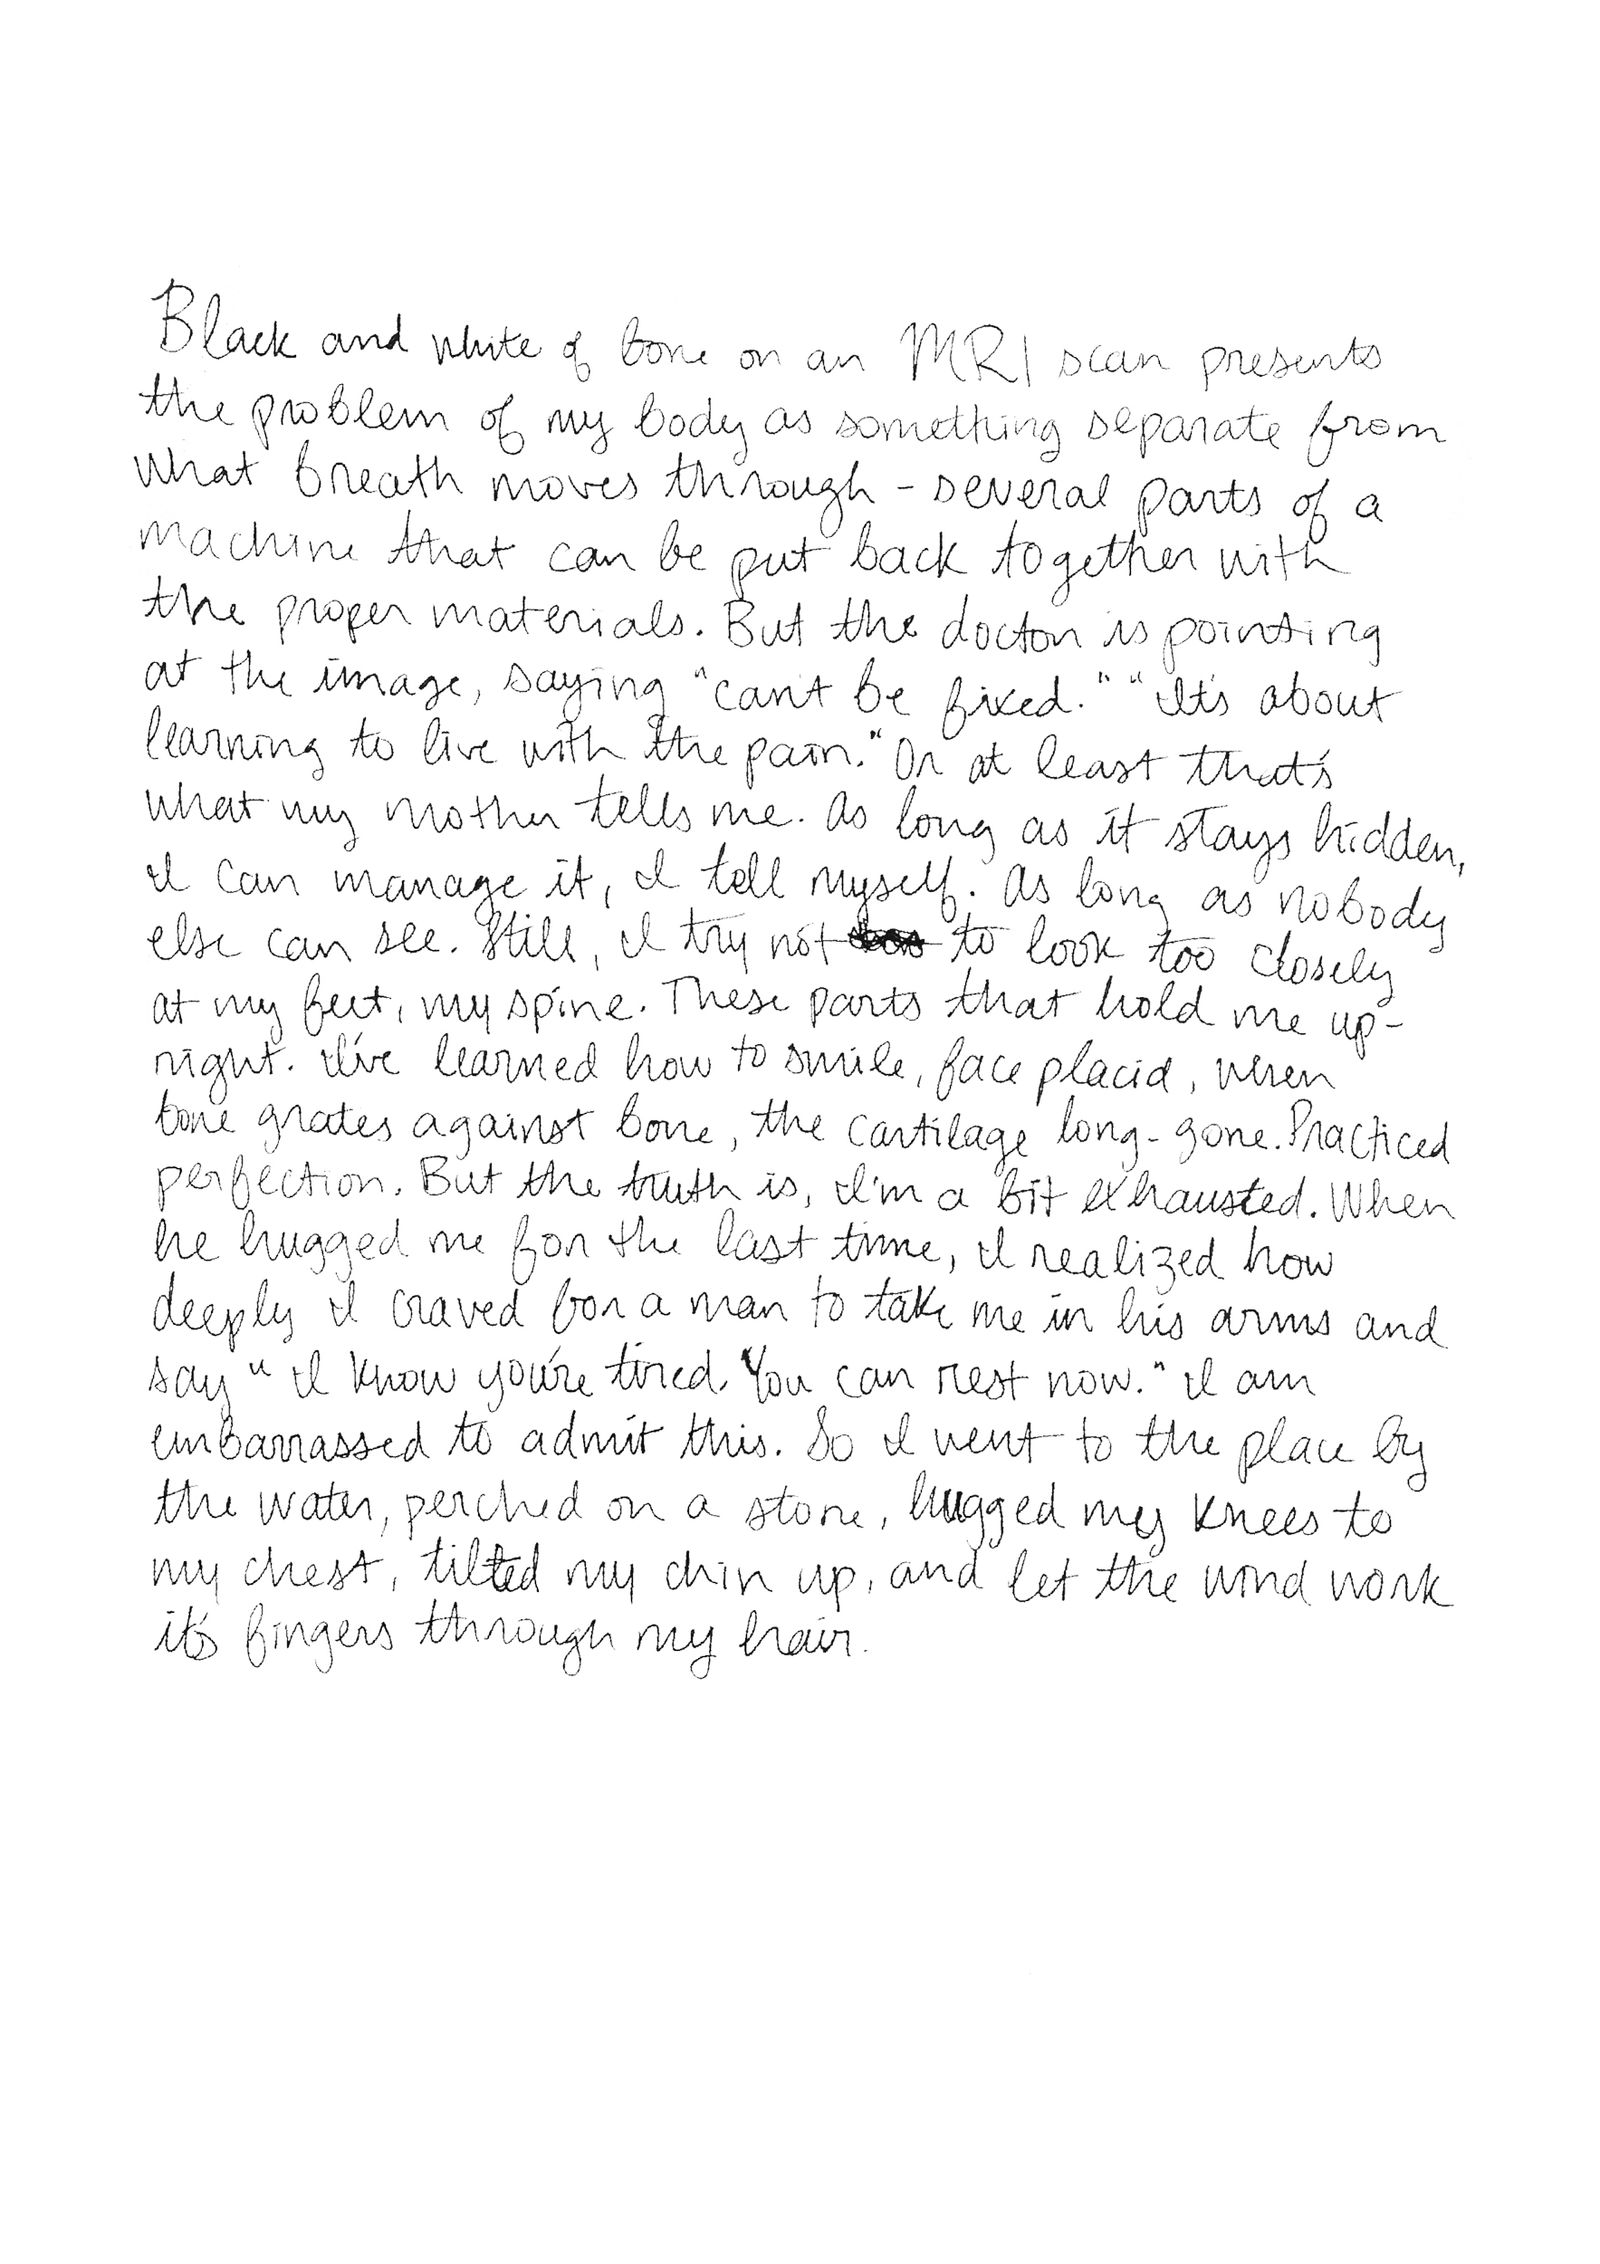 Black and white of bone on an MRI scan presents
the problem of my body as something separate from
what breath moves through - several parts of a
machine that can be put back together with
the proper materials. But the doctor is pointing
at the image, saying "can't be fixed." "It's about
learning to live with the pain." Or at least that's
what my mother tells me. As long as it stays hidden,
I can manage it, I tell myself. As long as nobody
else can see. Still, I try not to look too closely
at my feet, my spine. These parts that hold me up-
right. I've learned how to smile, face placid, when
bone grates against bone, the cartilage long-gone. Practiced
perfection. But the truth is, I'm a bit exhausted. When
he hugged me for the last time, I realized how
deeply I craved for a man to take me in his arms and
say "I know you're tired. You can rest now." I am
embarrassed to admit this. So I went to the place by
the water, perched on a stone, hugged my knees to
my chest, tilted my chin up, and let the wind work
it's fingers through my hair.